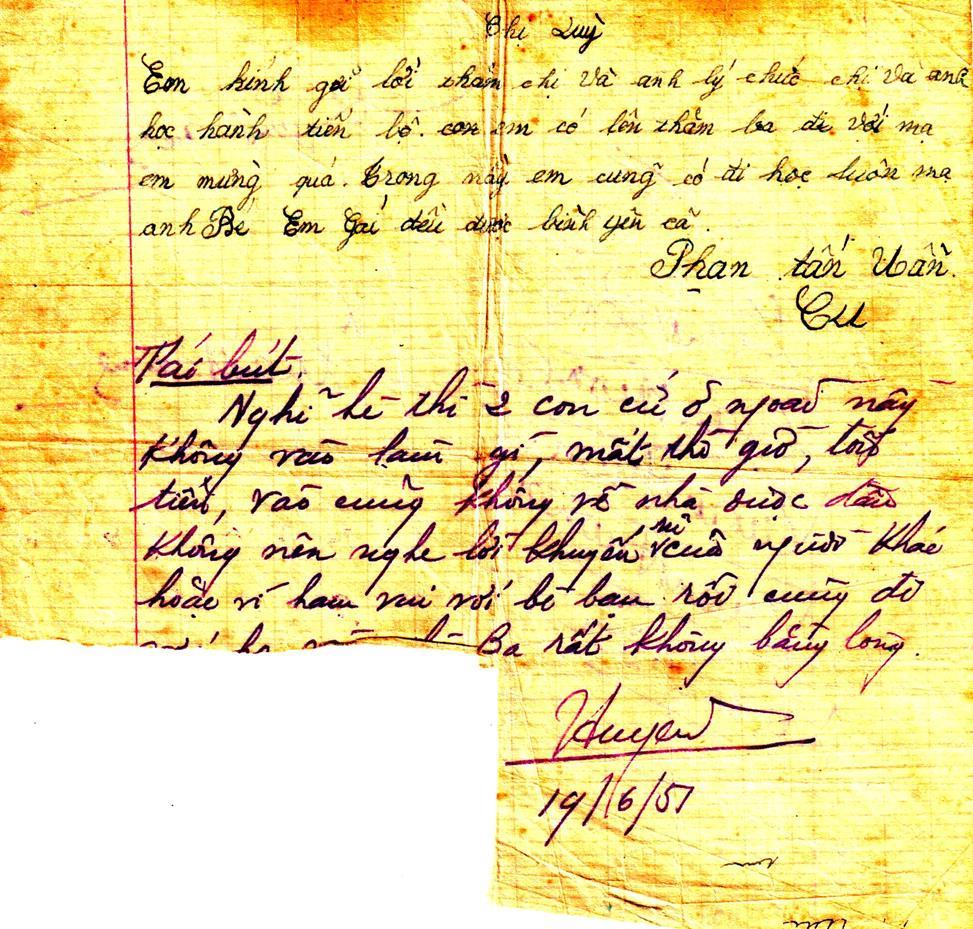 Chị Quỳ
Em kính gởi lời thăm chị và anh lý chúc chị và anh
học hành tiến bộ. con em có lên thăm ba đi với mạ
em mừng quá. Trong nầy em cung có đi học luôn mạ
anh Bé Em Gái đều được bình yên cã.
Phan tấn Uẩn
Cu
Tái bút.
Nghĩ hè thì 2 con cứ ở ngoài nầy
không vào làm gì, mất thì giờ, tốn
tiền, vào cũng không về nhà được đâu
không nên nghe lời khuyến của người khác
hoặc vì ham vui với bè bạn rồi cùng đi
Ba rất không bằng lòng.
Huyên
19/6/51